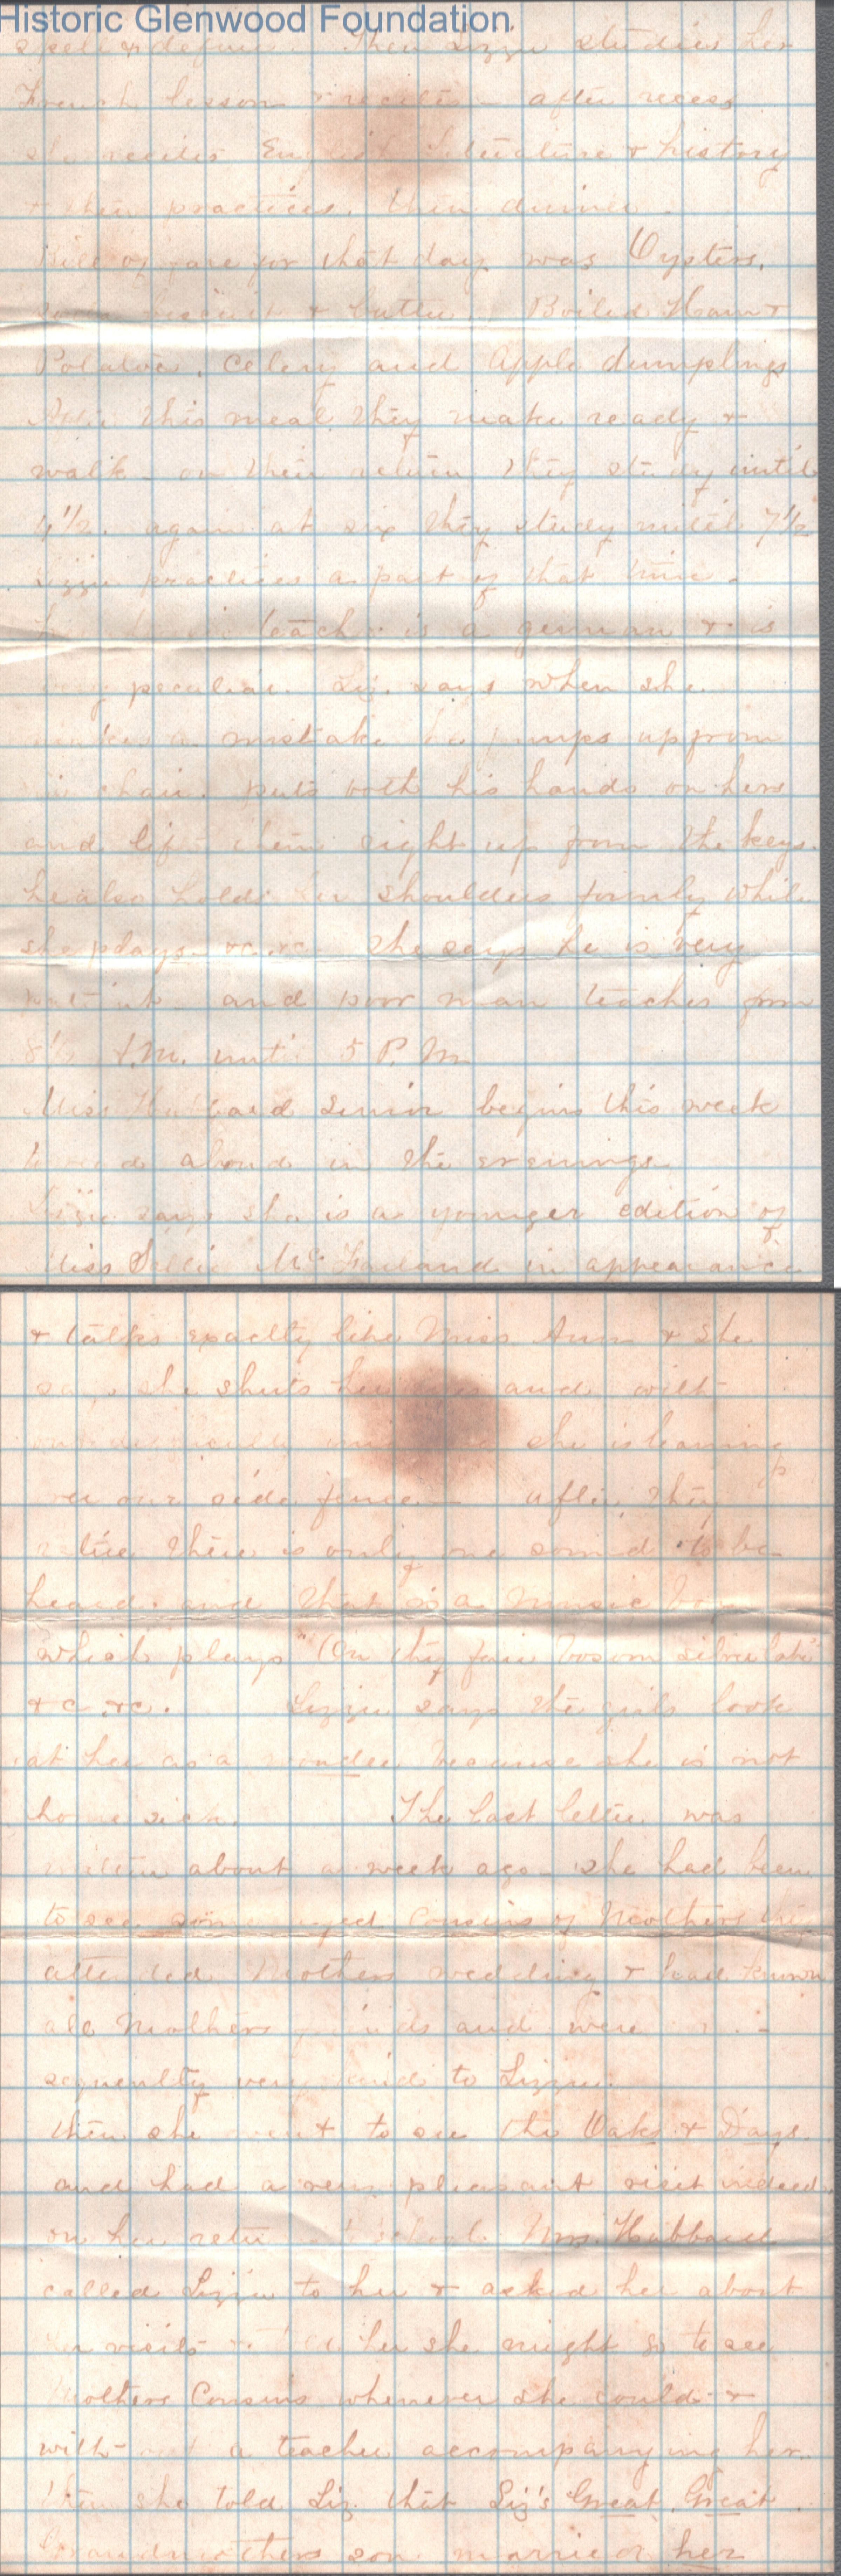 Historic Glenwood Foundation
spell & define. Then Lizzie studies her
French lesson & recites - after recess
she recites English Literature & history
& then practices. then dinner -
Bill of fare for that day was Oysters,
biscuit & butter - Boiled Ham &
Potatoe, Celery and Apple dumplings
After this meal they make ready &
walk - on their return they study until
4 1/2. again at six they study until 7 1/2
Lizzie practices a part of that time -
teacher is a german & is
very peculiar. Liz. says when she
makes a mistake he jumps up from
his chair. puts both his hands on hers
and lifts them right up from the keys.
he also holds her shoulders firmly while
she plays &c. &c. She says he is very
patient - and poor man teaches from
8 1/2 A.M. until 5 P.M.
Miss Hubbard Senior begins this week
to read aloud in the evenings.
Lizzie says she is a younger edition of
Miss Sallie McFarland in appearance &
& talks exactly like Miss Ann & she
says she shuts her eyes and with
she is leaning
over our side fence - after they
retire there is only one sound to be
heard. and that is a Music box
which plays "On thy fair bosom silver lake"
&c &c. Lizzie says the girls look
at her as a wonder because she is not
home sick. The last letter was
written about a week ago - she had been
to see some aged Cousins of Mothers who
attended Mothers wedding & had known
all Mothers friends and were con-
sequently very kind to Lizzie.
then she went to see the Oaks & Days
and had a very pleasant visit indeed.
on her return to school. Mrs. Hubbard
called Lizzie to her & asked her about
her visits - told her she might go to see
Mothers Cousins whenever she could - &
with-out a teacher accompanying her.
then she told Liz. that Liz's Great, Great
Grandmothers son married her